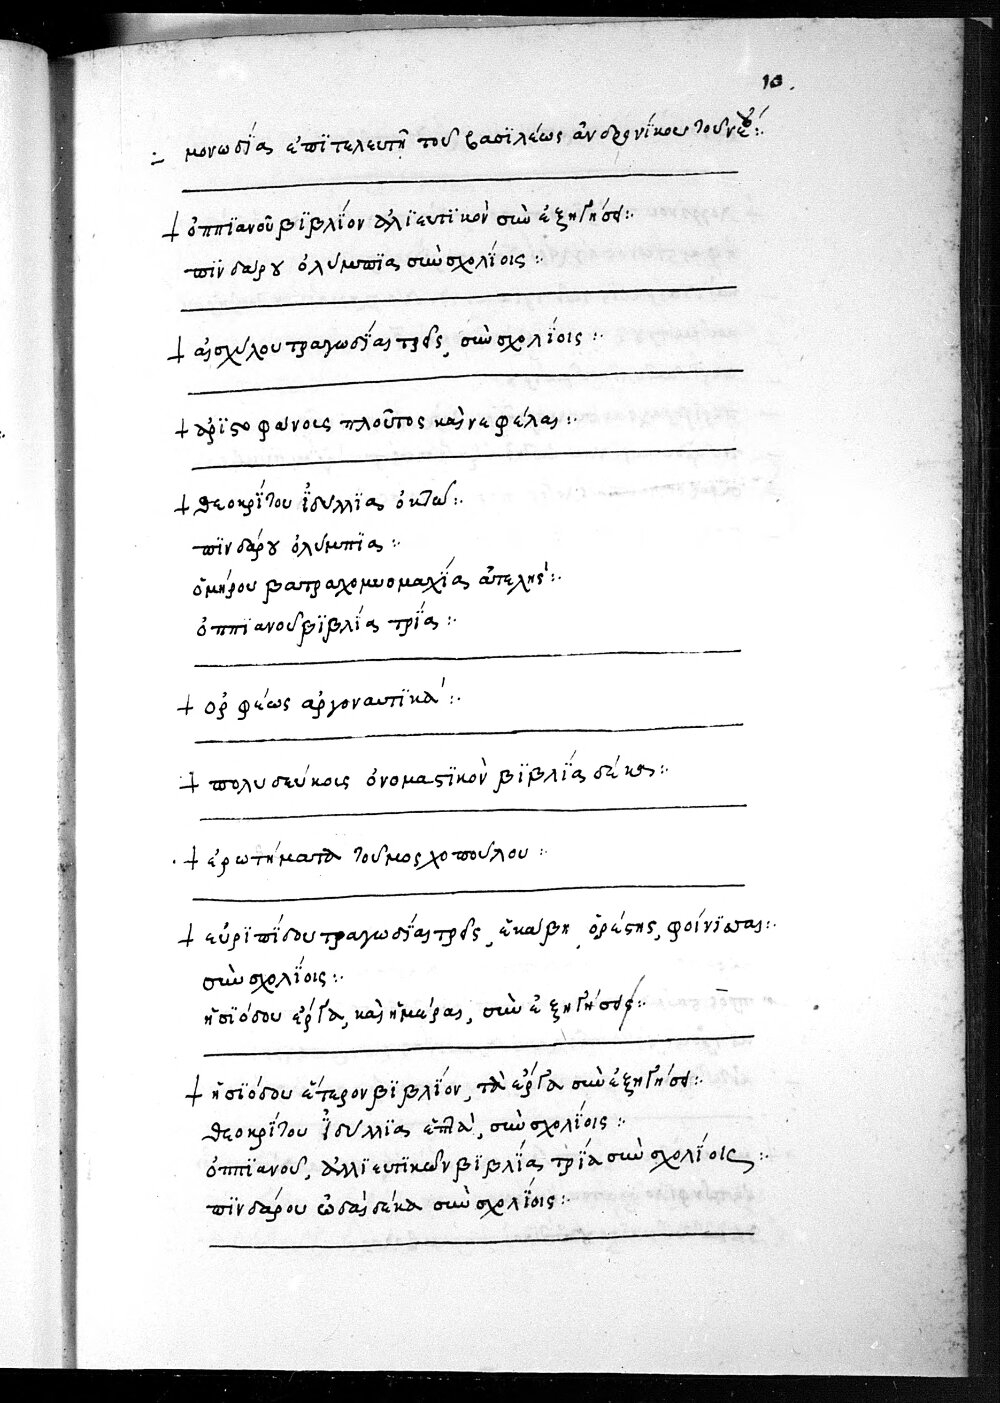 10.
μονωδΐας ἐπῒ τελευτῆ τοῦ βασϊλέως ἀνδρονΐκου τοῦ νέου:·
ὀππϊανοῦ βϊβλΐον ἁλϊευτϊκὸν σὺν ἐξηγήσει:·
πϊνδάρου ὀλύμπϊας σὺν σχολΐοις:·
αἰσχύλου τραγωδΐας τρεῖς, σὺν σχολΐοις:·
ἀρϊστοφάνους πλοῦτος καὶ νεφέλας:·
θεοκρΐτου ἰδύλλϊας ὀκτὼ:·
πϊνδάρου ὀλύμπϊας:·
ὁμήρου βατραχομυομαχΐας ἀτελὴς:·
ὀππϊανοῦ βϊβλΐας τρΐας:·
ὀρφέως ἀργοναυτϊκὰ:·
πολυδεύκους ὀνομαστϊκὸν βϊβλΐας δέκα:·
ἐρωτήματα τοῦ μοσχοπούλου:·
εὐρϊπΐδου τραγωδΐας τρεῖς, ἑκάβη, ὀρέστης, φοίνϊσσας:·
σὺν σχολΐοις:·
ἡσϊόδου ἔργα, καὶ ἡμέρας, σὺν ἐξηγήσει:·
ἡσϊόδου ἕτερον βϊβλΐον, τὰ ἔργα σὺν ἐξηγήσει:·
θεοκρΐτου ἰδύλλϊας ἑπτὰ, σὺν σχολΐοις:·
ὀππϊανοῦ, ἁλλϊευτϊκῶν βϊβλΐας τρΐα σὺν σχολΐοις:·
πϊνδάρου ὠδὰς δέκα σὺν σχολΐοις:·